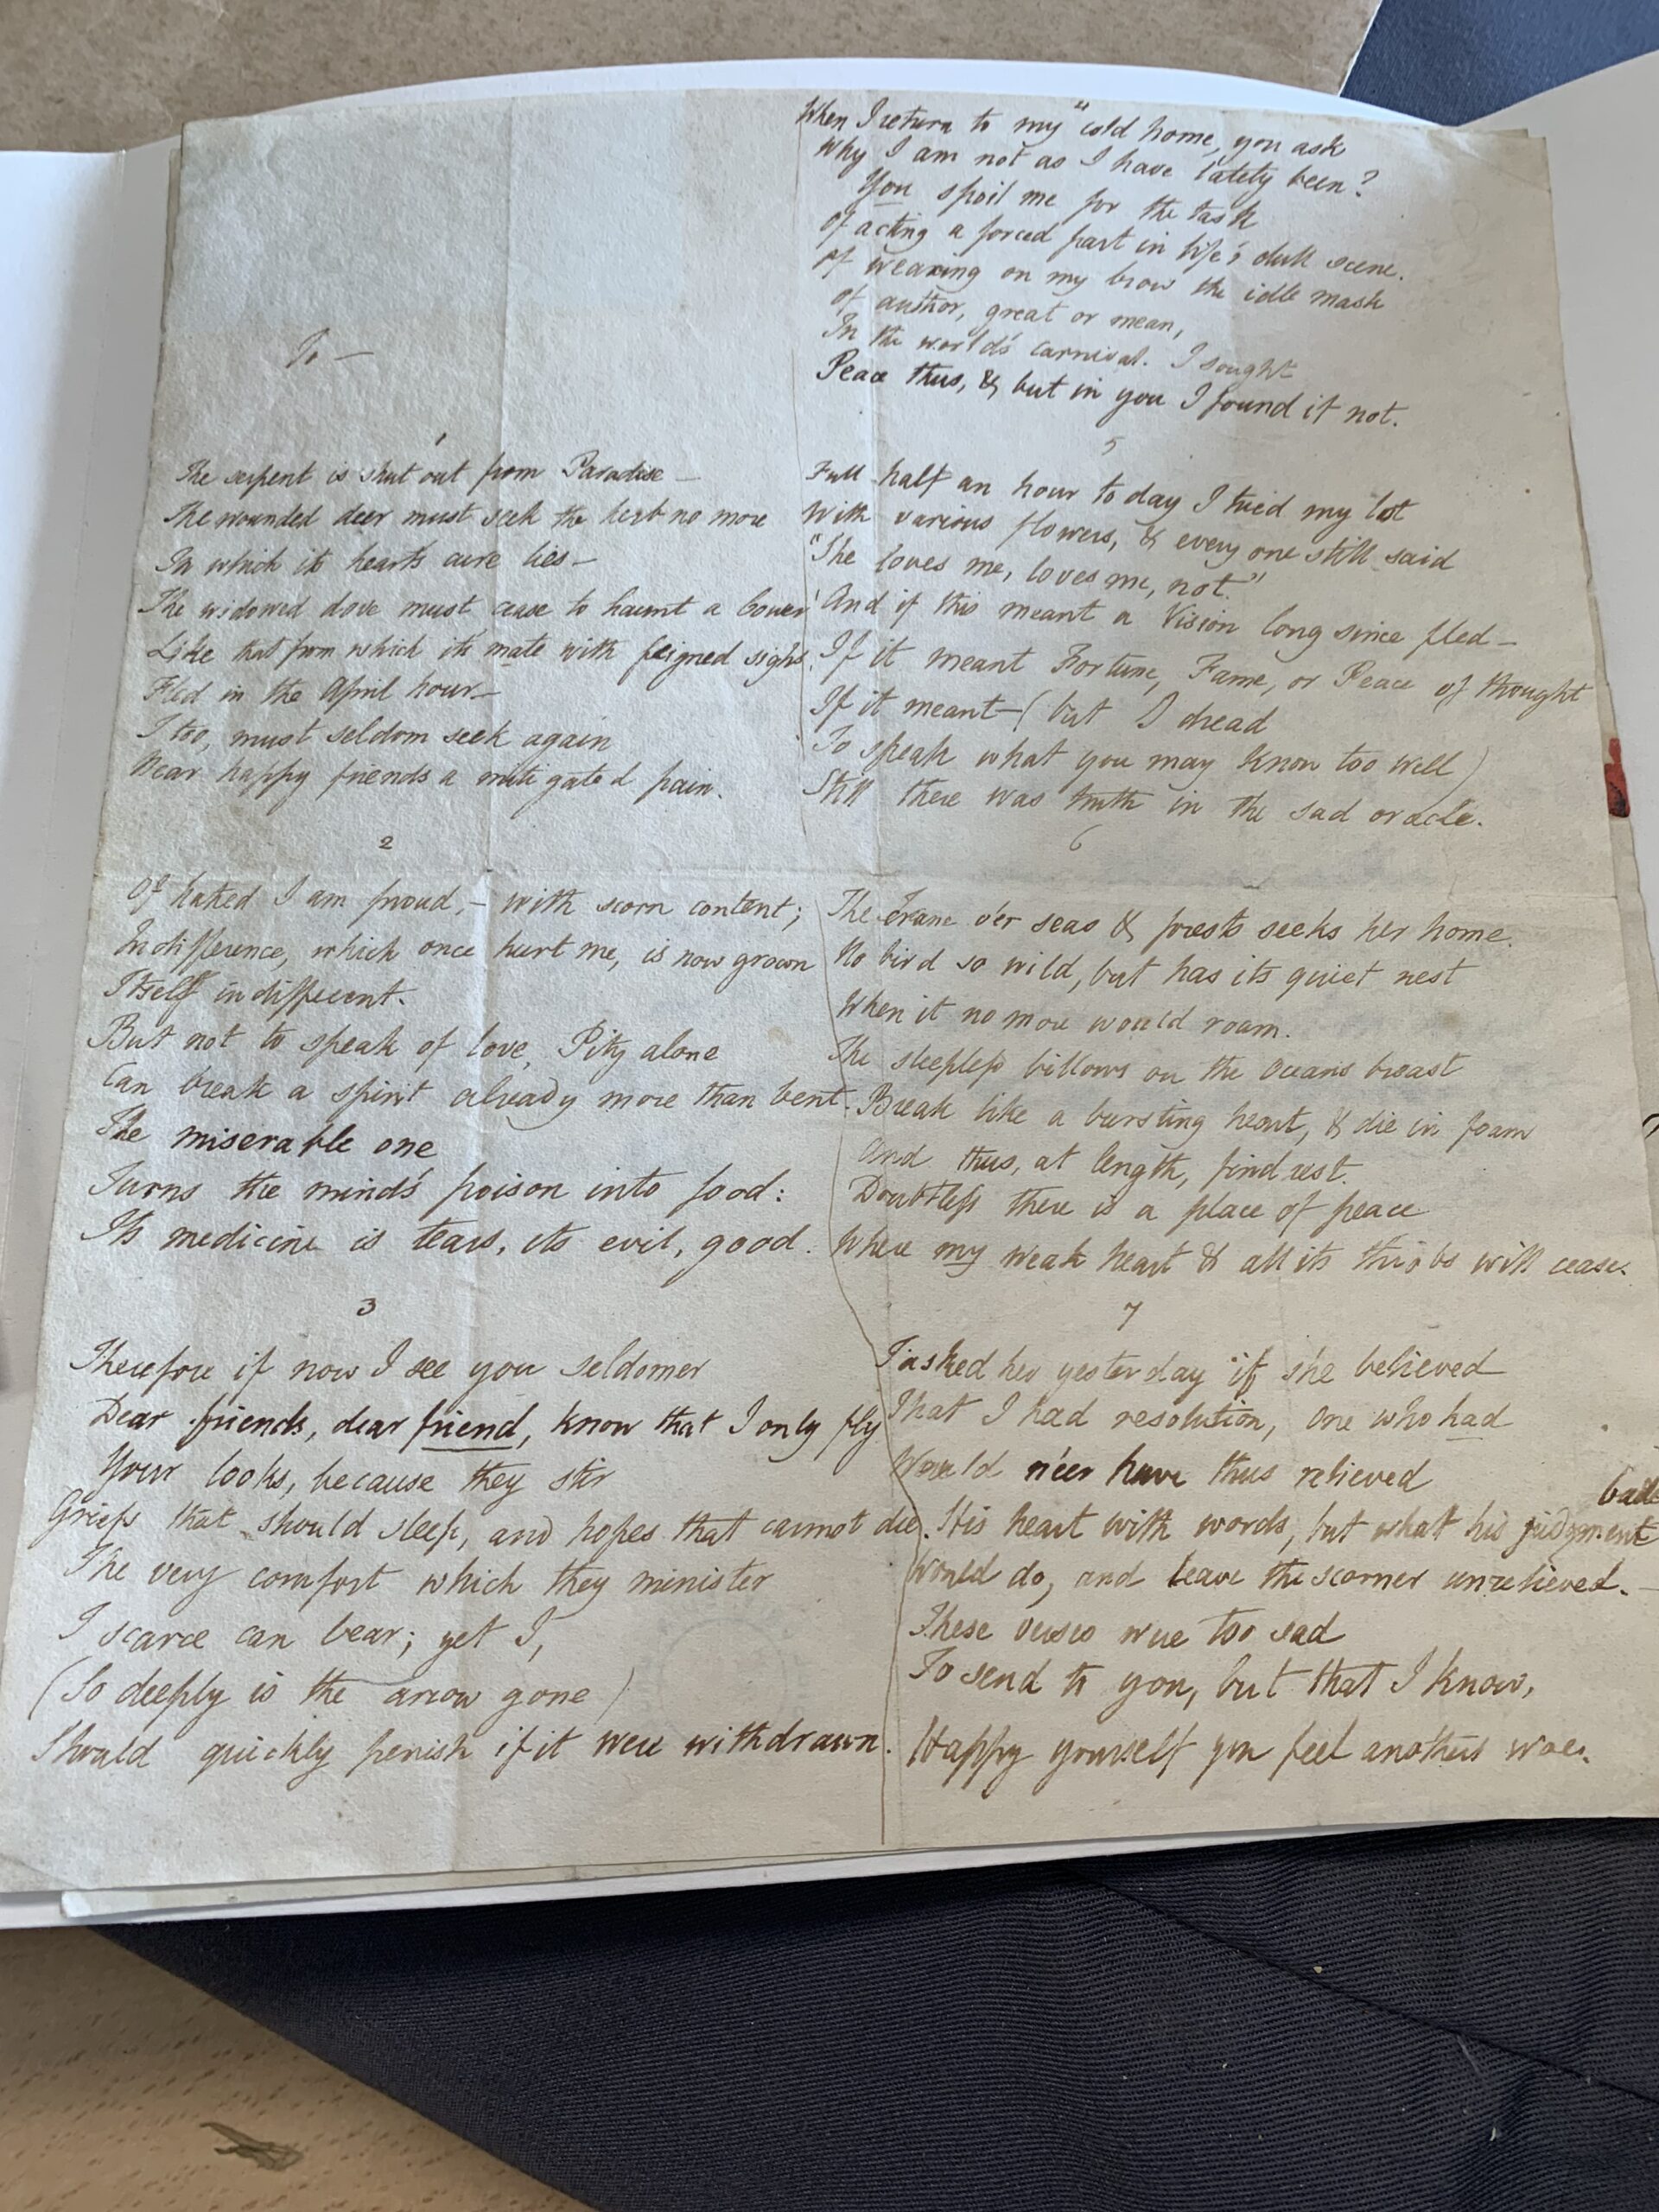 To —
1
The serpent is shut out from Paradise —
The wounded deer must seek the herb no more
In which its heart's cure lies —
The widowed dove must cease to haunt a bower
Like that from which its mate with feigned sighs
Fled in the April hour —
I too, must seldom seek again
Near happy friends a mitigated pain.
2
Of hatred I am proud, — with scorn content;
Indifference, which once hurt me, is now grown
Itself indifferent.
But not to speak of love, Pity alone
Can break a spirit already more than bent.
The miserable one
Turns the mind's poison into food:
Its medicine is tears, its evil, good.
3
Therefore if now I see you seldomer
Dear friends, dear friend, know that I only fly
Your looks, because they stir
Griefs that should sleep, and hopes that cannot die.
The very comfort which they minister
I scarce can bear; yet I,
(So deeply is the arrow gone)
Should quickly perish if it were withdrawn.
4
When I return to my "cold home, you ask
Why I am not as I have lately been?
You spoil me for the task
Of acting a forced part in life's dull scene.
Of wearing on my brow the idle mask
Of author, great or mean,
In the world's carnival. I sought
Peace thus, & but in you I found it not.
5
Full half an hour to day I tried my lot
With various flowers, & every one still said
"She loves me, loves me, not."
And if this meant a Vision long since fled —
If it meant Fortune, Fame, or Peace of thought
If it meant — (but I dread
To speak what you may know too well)
Still there was truth in the sad oracle.
6
The Crane o'er seas & forests seeks her home.
No bird so wild, but has its quiet nest
When it no more would roam.
The sleepless billows on the Oceans breast
Break like a bursting heart, & die in foam
And thus, at length, find rest.
Doubtless there is a place of peace
Where my weak heart & all its throbs will cease.
7
I asked her yesterday if she believed
That I had resolution, One who had
Would n'eer have thus relieved
His heart with words, but what his judgment bade
Would do, and leave the scorner unrelieved. —
These verses were too sad
To send to you, but that I know,
Happy yourself you feel anothers woe.